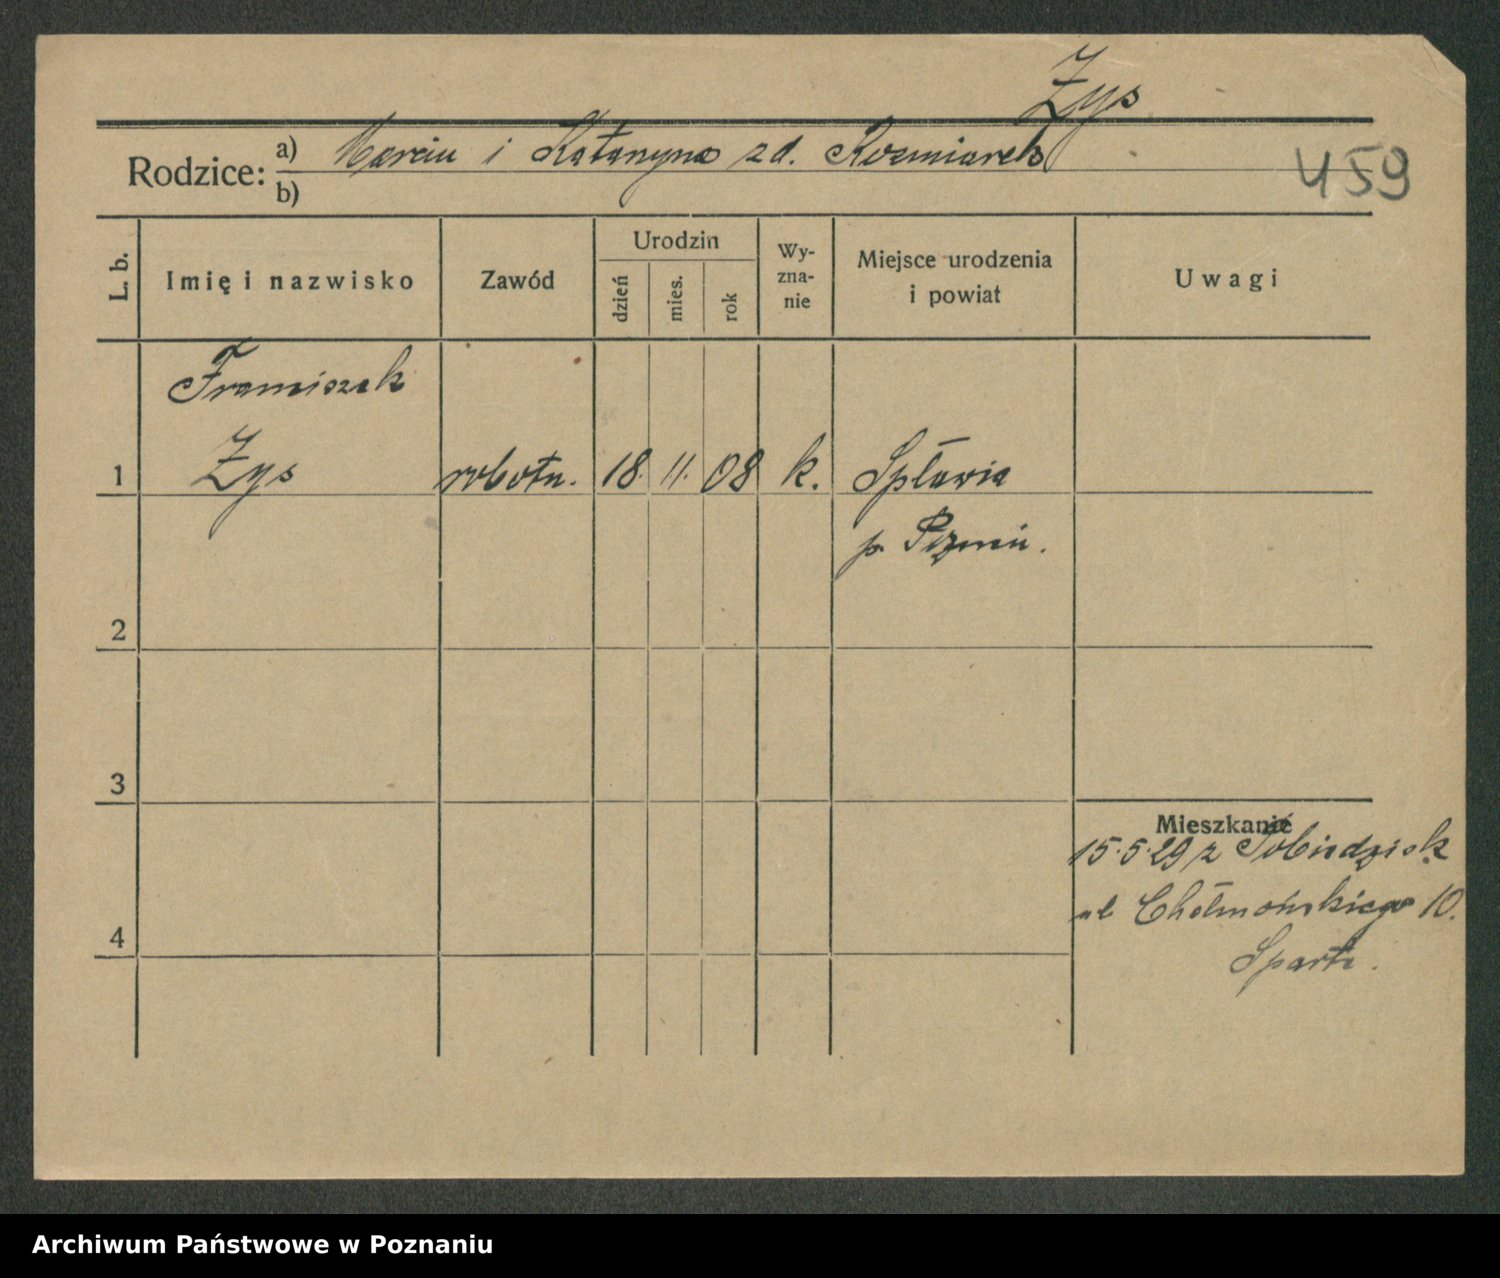 Żys
Rodzice: a) Marcin i Katarzyna zd. Kozmiarek
b)
459
L. b.
Imię i nazwisko
Zawód
Urodzin
dzień
mies.
rok
Wy-
zna-
nie
Miejsce urodzenia
i powiat
Uwagi
Franciszek
1 Żys robotn. 18. 11. 08 k. Spławia
p. Poznań.
2
3
Mieszkanie
15.5.29 z Pobiedzisk
ul Chełmońskiego 10.
4
Archiwum Państwowe w Poznaniu